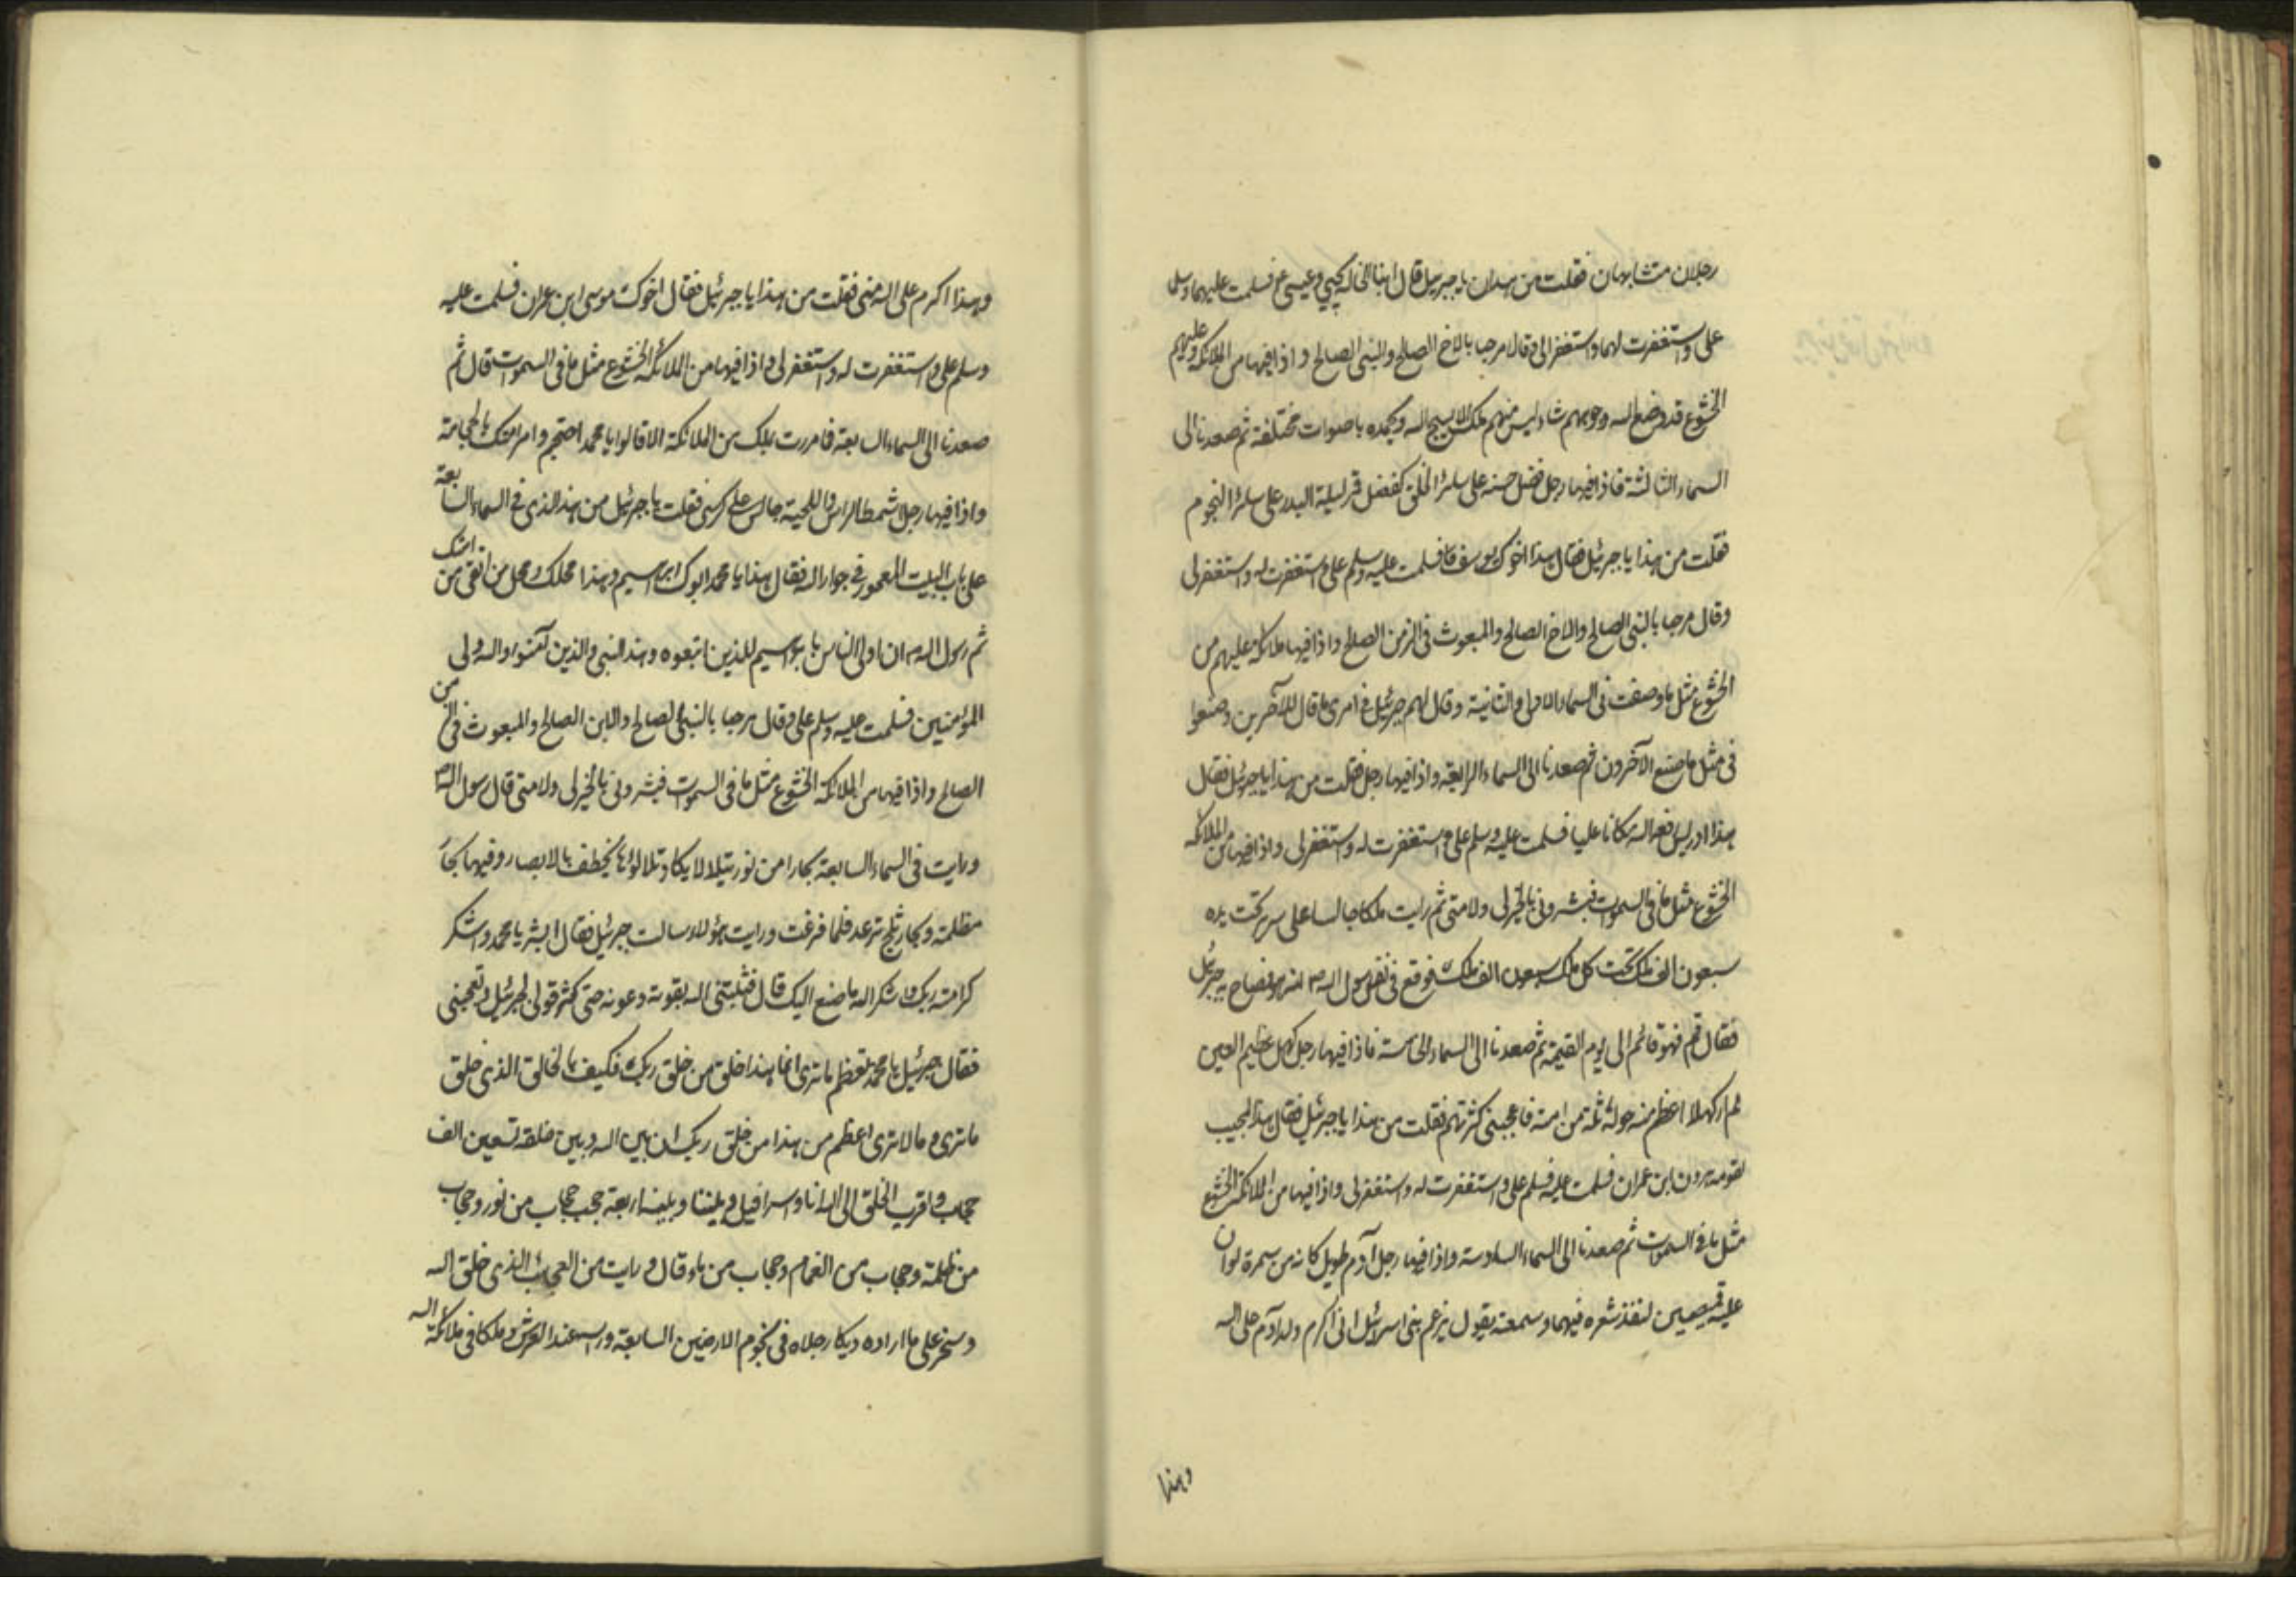 رجلان متشابهان فقلت من هذان يا جبرئيل قال ابنا الخالة يحيى وعيسى ع فسلمت عليهما وسلما
على واستغفرت لهما واستغفرا لى وقالا مرحبا بالاخ الصالح والنبى الصالح واذا فيهما من الملائكة وعليهم
الخشوع قد وضع الله وجوههم شاء ليس منهم ملك الا يسبح الله وبحمده باصوات مختلفة ثم صعدنا الى
السماء الثالثة فاذا فيها رجل فضل حسنه على سائر الخلق كفضل قمر ليلة البدر على سائر النجوم
فقلت من هذا يا جبرئيل فقال هذا اخوك يوسف فسلمت عليه وسلم على واستغفرت له واستغفر لى
وقال مرحبا بالنبى الصالح والاخ الصالح والمبعوث فى الزمن الصالح واذا فيها ملائكة عليهم من
الخشوع مثل ما وصفت فى السماء الاولى والثانية وقال لهم جبرئيل فى امرى ما قال للآخرين وصنعوا
فى مثل ما صنع الآخرون ثم صعدنا الى السماء الرابعة واذا فيها رجل فقلت من هذا يا جبرئيل فقال
هذا ادريس رفعه الله مكانا عليا فسلمت عليه وسلم على واستغفرت له واستغفر لى واذا فيها من الملائكة
الخشوع مثل ما فى السموات فبشرونى بالخير لى ولامتى ثم رايت ملكا جالسا على سرير تحت يده
سبعون الف ملك تحت كل ملك سبعون الف ملك فوقع فى نفس رسول الله ص انه هو فصاح به جبرئيل
فقال قم فهو قائم الى يوم القيمة ثم صعدنا الى السماء الخامسة فاذا فيها رجل كهل عظيم العين
لم ار كهلا اعظم منه حوله ثلة من امته فاعجبنى كثرتهم فقلت من هذا يا جبرئيل فقال هذا المجيب
لقومه هرون ابن عمران فسلمت عليه فسلم على واستغفرت له واستغفر لى واذا فيها من الملائكة الخشوع
مثل ما فى السموات ثم صعدنا الى السماء السادسة واذا فيها رجل آدم طويل كانه من سمرة لو ان
عليه قميصين لنفذ شعره فيهما وسمعته يقول يزعم بنى اسرائيل انى اكرم ولد آدم على الله
وهذا
وهذا اكرم على الله منى فقلت من هذا يا جبرئيل فقال اخوك موسى ابن عمران فسلمت عليه
وسلم على واستغفرت له واستغفر لى واذا فيها من الملائكة الخشوع مثل ما فى السموات قال ثم
صعدنا الى السماء السابعة فما مررت بملك من الملائكة الا قالوا يا محمد احتجم وامر امتك بالحجامة
واذا فيها رجل اشمط الراس واللحية جالس على كرسى فقلت يا جبرئيل من هذا الذى فى السماء السابعة
على باب البيت المعمور فى جوار الله فقال هذا يا محمد ابوك ابرهيم وهذا محلك ومحل من اتقى من امتك
ثم رسول الله ص ان اولى الناس بابرهيم للذين اتبعوه وهذا النبى والذين آمنوا والله ولى
المؤمنين فسلمت عليه وسلم على وقال مرحبا بالنبى الصالح والابن الصالح والمبعوث فى الزمن
الصالح واذا فيها من الملائكة الخشوع مثل ما فى السموات فبشرونى بالخير لى ولامتى قال رسول الله ص
ورايت فى السماء السابعة بحارا من نور يتلالا يكاد تلالؤها يخطف بالابصار وفيها بحار
مظلمة وبحار ثلج ترعد فلما فزعت ورايت هؤلاء سالت جبرئيل فقال ابشر يا محمد واشكر
كرامة ربك واشكر الله ما صنع اليك قال فثبتنى الله بقوته وعونه حتى كثر قولى لجبرئيل وتعجبى
فقال جبرئيل يا محمد تعظم ما ترى انما هذا خلق من خلق ربك فكيف بالخالق الذى خلق
ما ترى وما لا ترى اعظم من هذا من خلق ربك ان بين الله وبين خلقه تسعين الف
حجاب واقرب الخلق الى الله انا واسرافيل وبيننا وبينه اربعة حجب حجاب من نور وحجاب
من ظلمة وحجاب من الغمام وحجاب من ماء وقال ورايت من العجائب الذى خلق الله
وسخر على ما اراده ديكا رجلاه فى تخوم الارضين السابعة وراسه عند العرش وملكا فى ملائكة الله